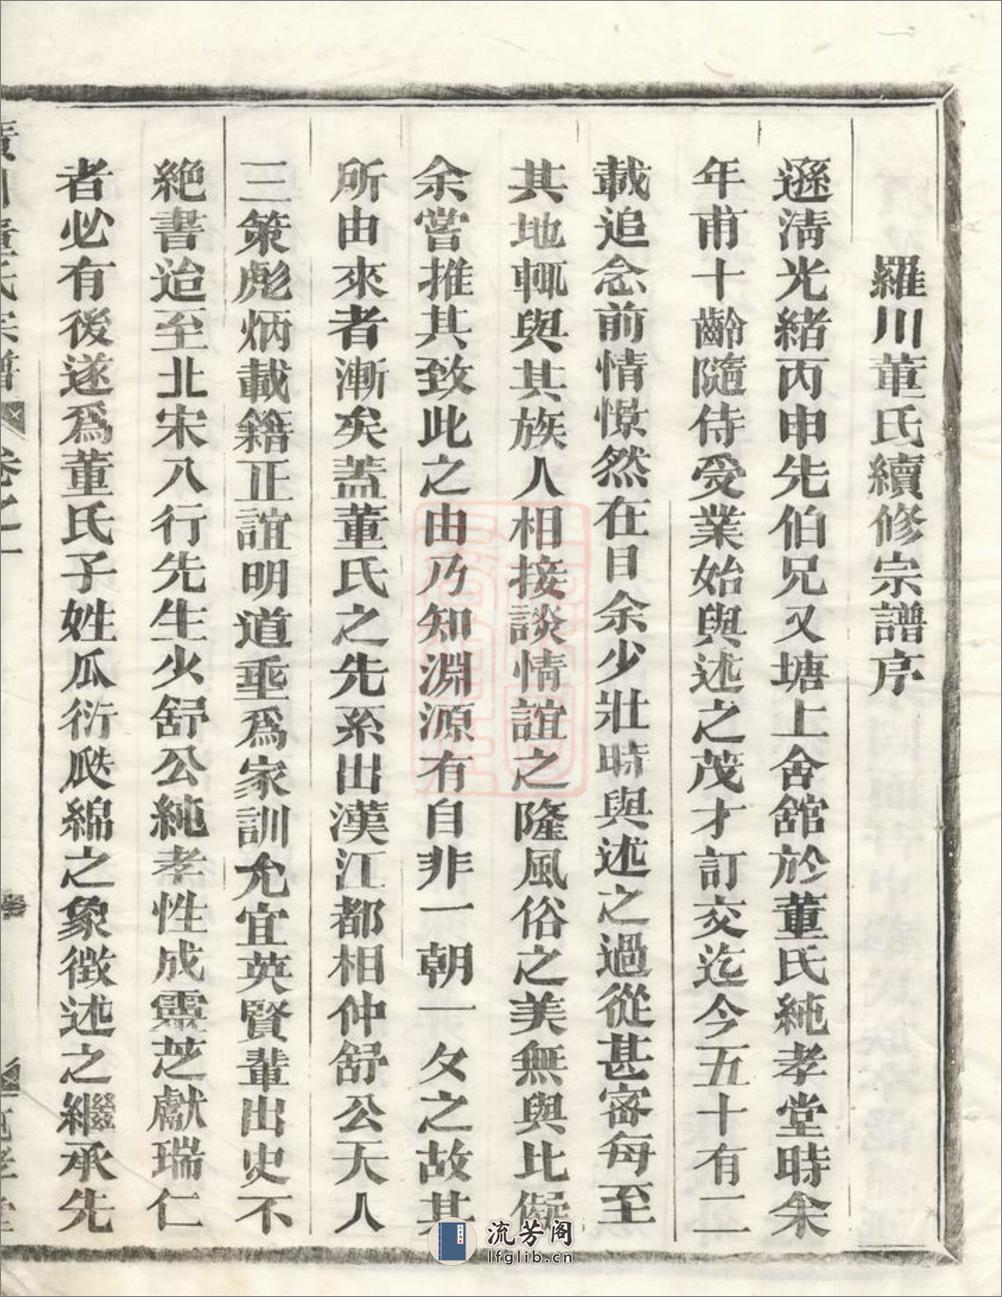 羅川董氏續修宗譜序
遜清光緒丙申先伯兄又塘上舍舘於董氏純孝堂時余
年甫十齡隨侍受業始與述之茂才訂交迄今五十有二
載追念前情憬然在目余少壯時與述之過從甚密每至
其地輒與其族人相接談情誼之隆風俗之美無與比儗
余嘗推其致此之由乃知淵源有自非一朝一夕之故其
所由來者漸矣蓋董氏之先系出漢江都相仲舒公天人
三策彪炳載籍正誼明道垂爲家訓允宜英賢輩出史不
絶書迨至北宋八行先生火舒公純孝性成靈芝獻瑞仁
者必有後遂爲董氏子姓瓜衍瓞綿之象徵述之繼承先
董氏宗譜 卷之一
流芳阁
lfglib.cn